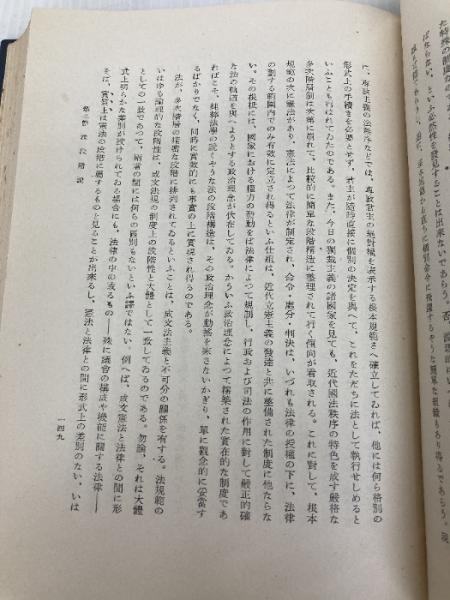 た特殊の制度なの
ばならない、といふ必然性を發見することは出來ないであらう。否、
に、專政主義の法秩序などでは、專政君主の絕對權を表示する根本規範さへ確立してゐれば、他には何ら格別の
形式上の手續きを必要とせず、君主が隨時直接に個別の決定を與へて、これをただちに法として執行せしめると
いふことも行はれてゐたのである。また、今日の獨裁主義の諸國家を見ても、近代國法秩序の特色を成す嚴格な
多次階層制は次第に崩れて、比較的に簡單な段階構造に整理されて行く傾向が看取される。これに對して、根本
規範の次に憲法があり、憲法によつて法律が制定され、命令・處分・判決は、いづれも法律の授權の下に、法律
の劃する範圍內でのみ有效に定立され得るといふ仕組は、近代立憲主義の發達と共に整備された制度に他ならな
い。その根柢には、國家における權力の發動をば法律によつて規制し、行政および司法の作用に對して嚴正的確
な法の軌道を與へようとする政治理念が伏在してゐる。かういふ政治理念によつて構築された實在的な制度であ
ればこそ、純粹法學の說くやうな法の段階構造は、その政治理念が動搖を來さないかぎり、單に觀念的に妥當す
るばかりでなく、同時に實效的にも事實の上に實現され得るのである。
法が、多次階層の精密な段階に排列されてゐるといふことは、成文法主義と不可分の關係を有する。法規範の
いはゆる論理的な段階は、成文法規の制度上の段階性と大體として一致してゐるのである。勿論、それは大體
としての一致であつて、兩者の間には何らの齟齬もないといふ譯ではない。例へば、成文憲法と法律との間に形
式上明らかな差別が設けられてゐる場合にも、法律の中の或るもの――殊に議會の構成や機能に關する法律――
は、實質上は憲法の段階に屬するものと見ることが出來るし、憲法と法律との間に形式上の差別のない、いは
第二節 法段階說
一四九